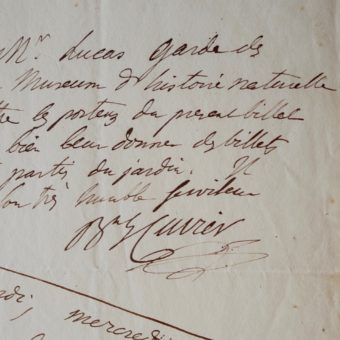 Mr. Lucas garde des
Museum d'histoire naturelle
les porteurs du present billet
bien leur donner des billets
parties du jardin. Il
son très humble serviteur
Cuvier
mercredi